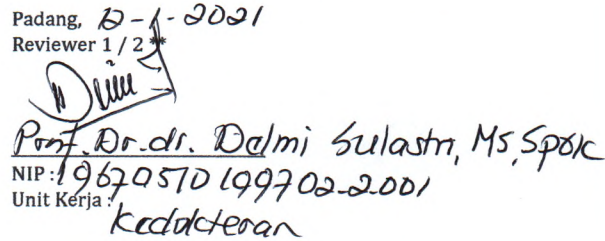 Padang, 12-1-2021
Reviewer 1 / 2 **
Prof. Dr. dr. Delmi Sulastri, MS, SpGK
NIP : 19670510199702.2.001
Unit Kerja :
Kedokteran